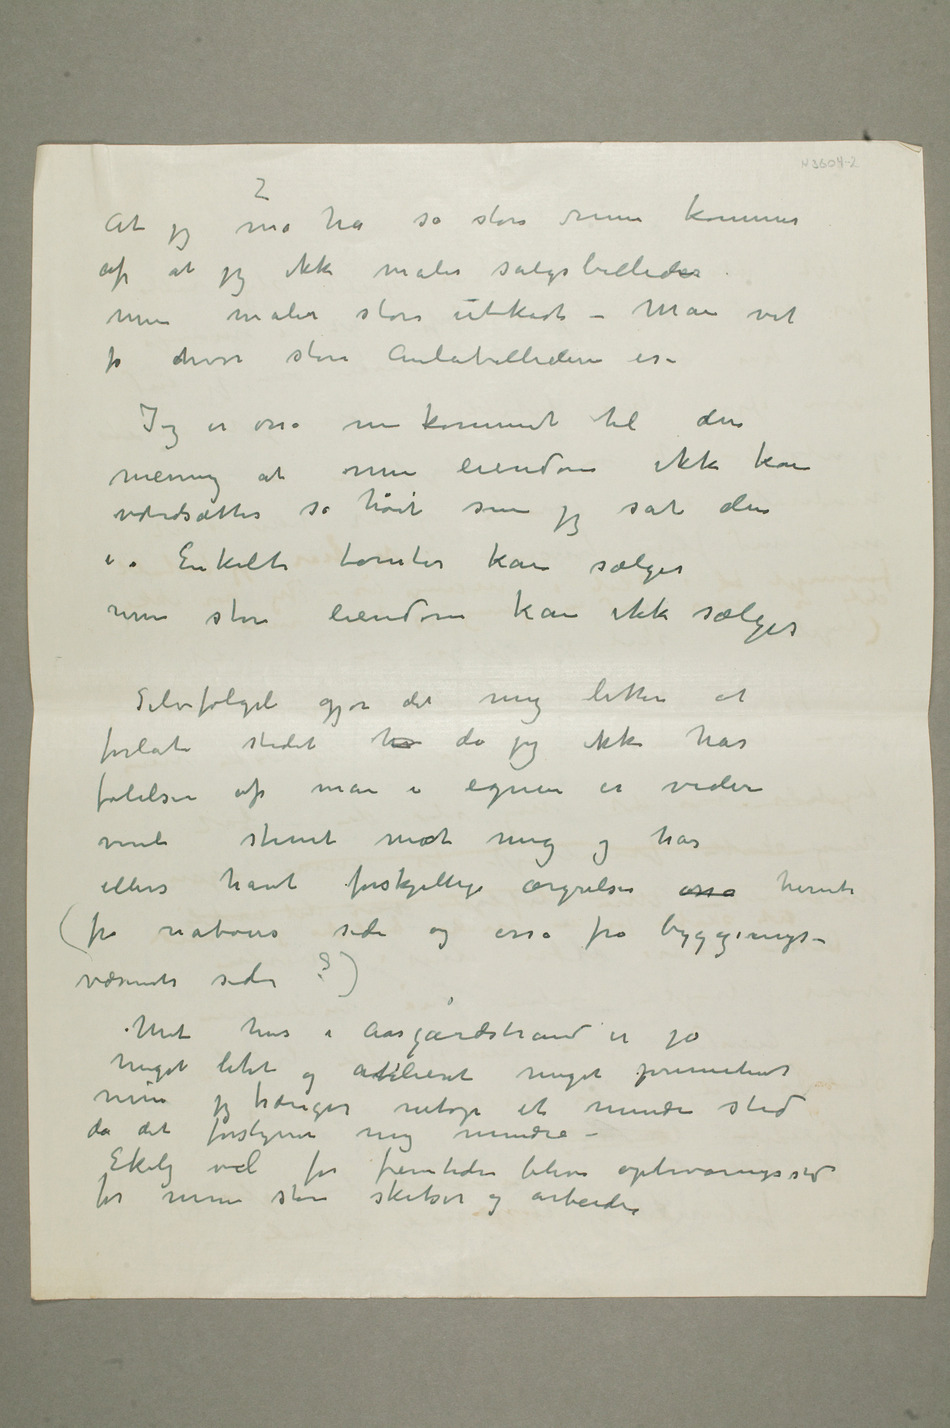 N3604-2
2
At jeg må ha så store rum kommer
af at jeg ikke maler salgsbilleder
men maler store utkast – Man vet
jo hvor store Aulabilledene er –
Jeg er osså nu kommet til den
mening at min eiendom ikke kan
værdsættes så høit som jeg sat den
i. Enkelte tomter kan sælges
min store eiendom kan ikke sælges
Selvfølgeli gjør det mig lettere at
forlate stedet da jeg ikke har
følelsen af man i egnen er videre
venli stemt mot mig og har
ellers havt forskjellige ærgrelser osså herute
(fra naboers side og osså fra bygnings-
væsenets side?)
Mit hus i Aasgårdstrand er jo
meget litet og atelieret meget primitivt
men jeg trænger netop et mindre sted
da det forstyrrer mig mindre –
Ekely vil for fremtiden bli opbevaringssted
for mine store skitser og arbeider